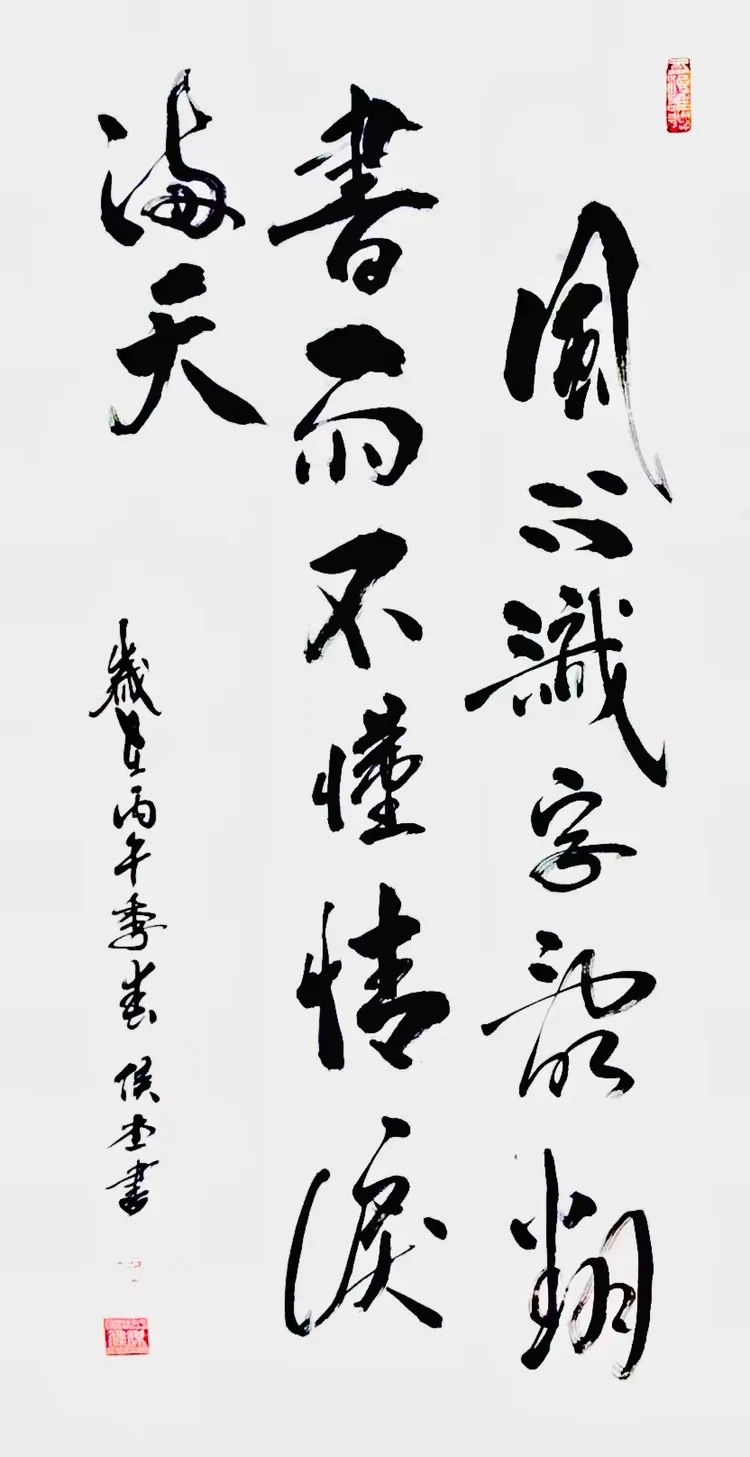 風不識字亂翻
書雨不懂情淚
滿天
歲在丙午季春 侯杰書